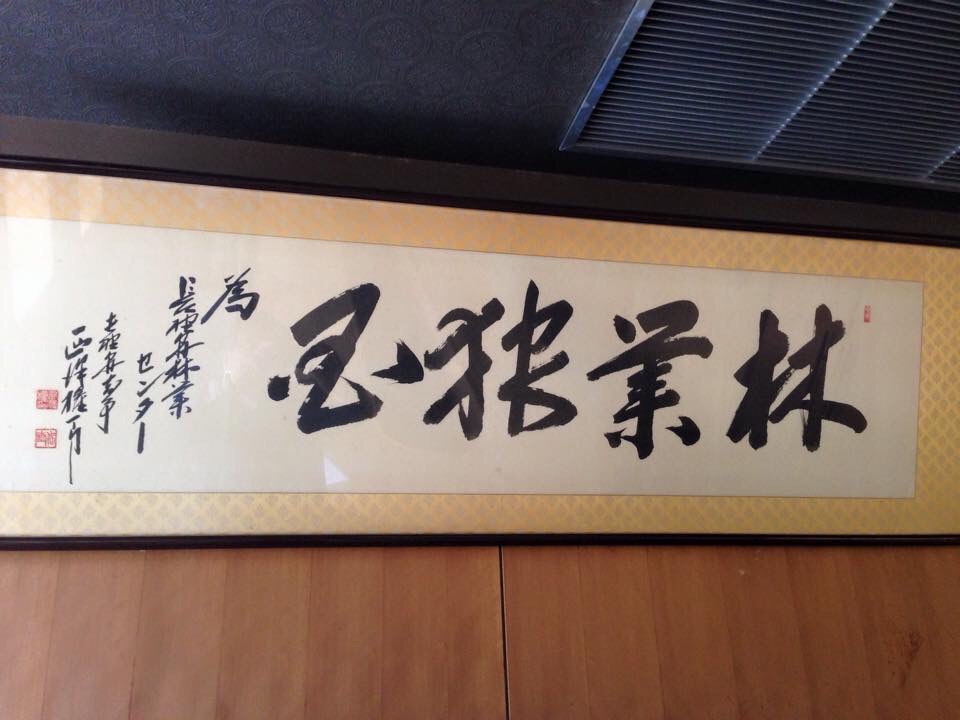 林業報国
為
長野県林業
センター
長野県知事
西沢権一郎